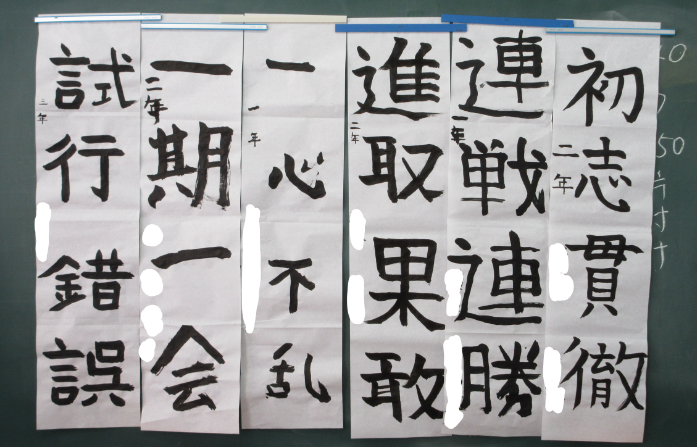 初志貫徹
二年
連戦連勝
一年
進取果敢
二年
一心不乱
一年
一期一会
二年
試行錯誤
三年
50